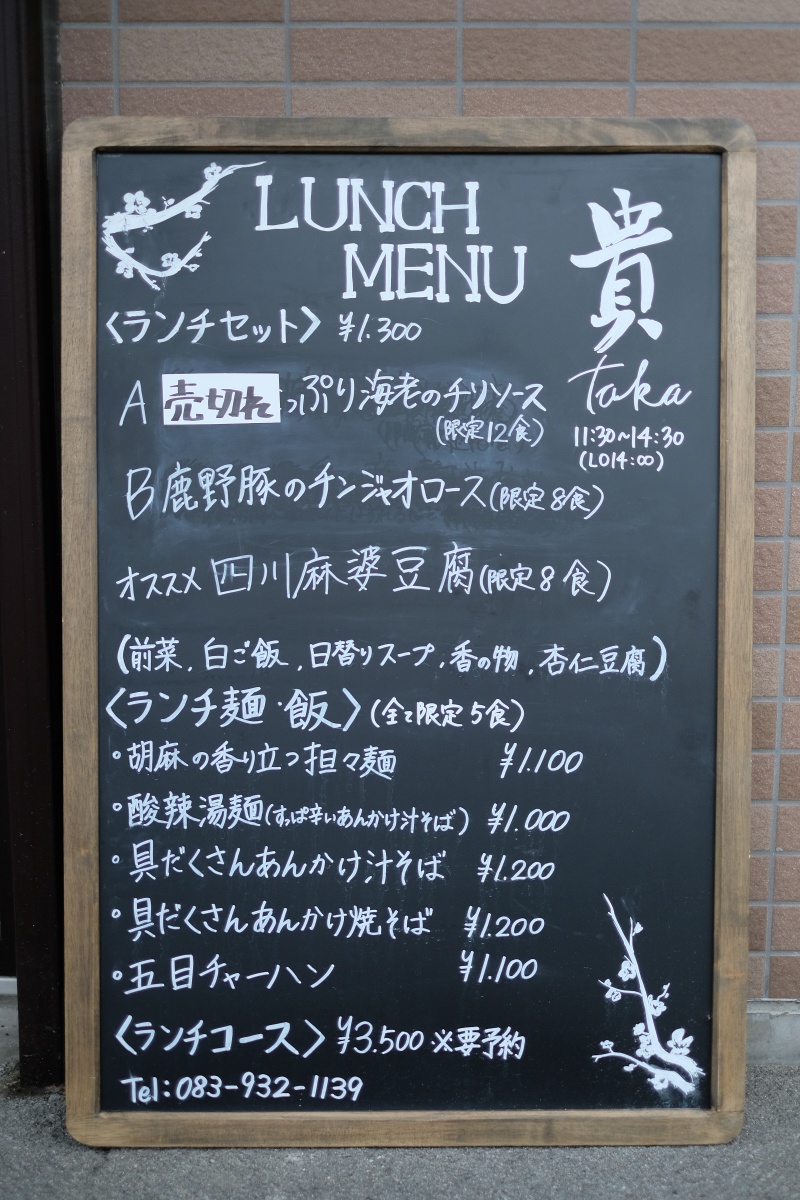 LUNCH
MENU
貴
taka
11:30～14:30
(LO14:00)
〈ランチセット〉 ¥1.300
A 売切れ っぷり海老のチリソース
(限定12食)
B 鹿野豚のチンジャオロース(限定8食)
オススメ 四川麻婆豆腐(限定8食)
(前菜,白ご飯,日替りスープ,香の物,杏仁豆腐)
〈ランチ麺・飯〉(全て限定5食)
・胡麻の香り立つ担々麺 ¥1.100
・酸辣湯麺(すっぱ辛いあんかけ汁そば) ¥1.000
・具だくさんあんかけ汁そば ¥1.200
・具だくさんあんかけ焼そば ¥1.200
・五目チャーハン ¥1.100
〈ランチコース〉¥3.500 ※要予約
Tel:083-932-1139